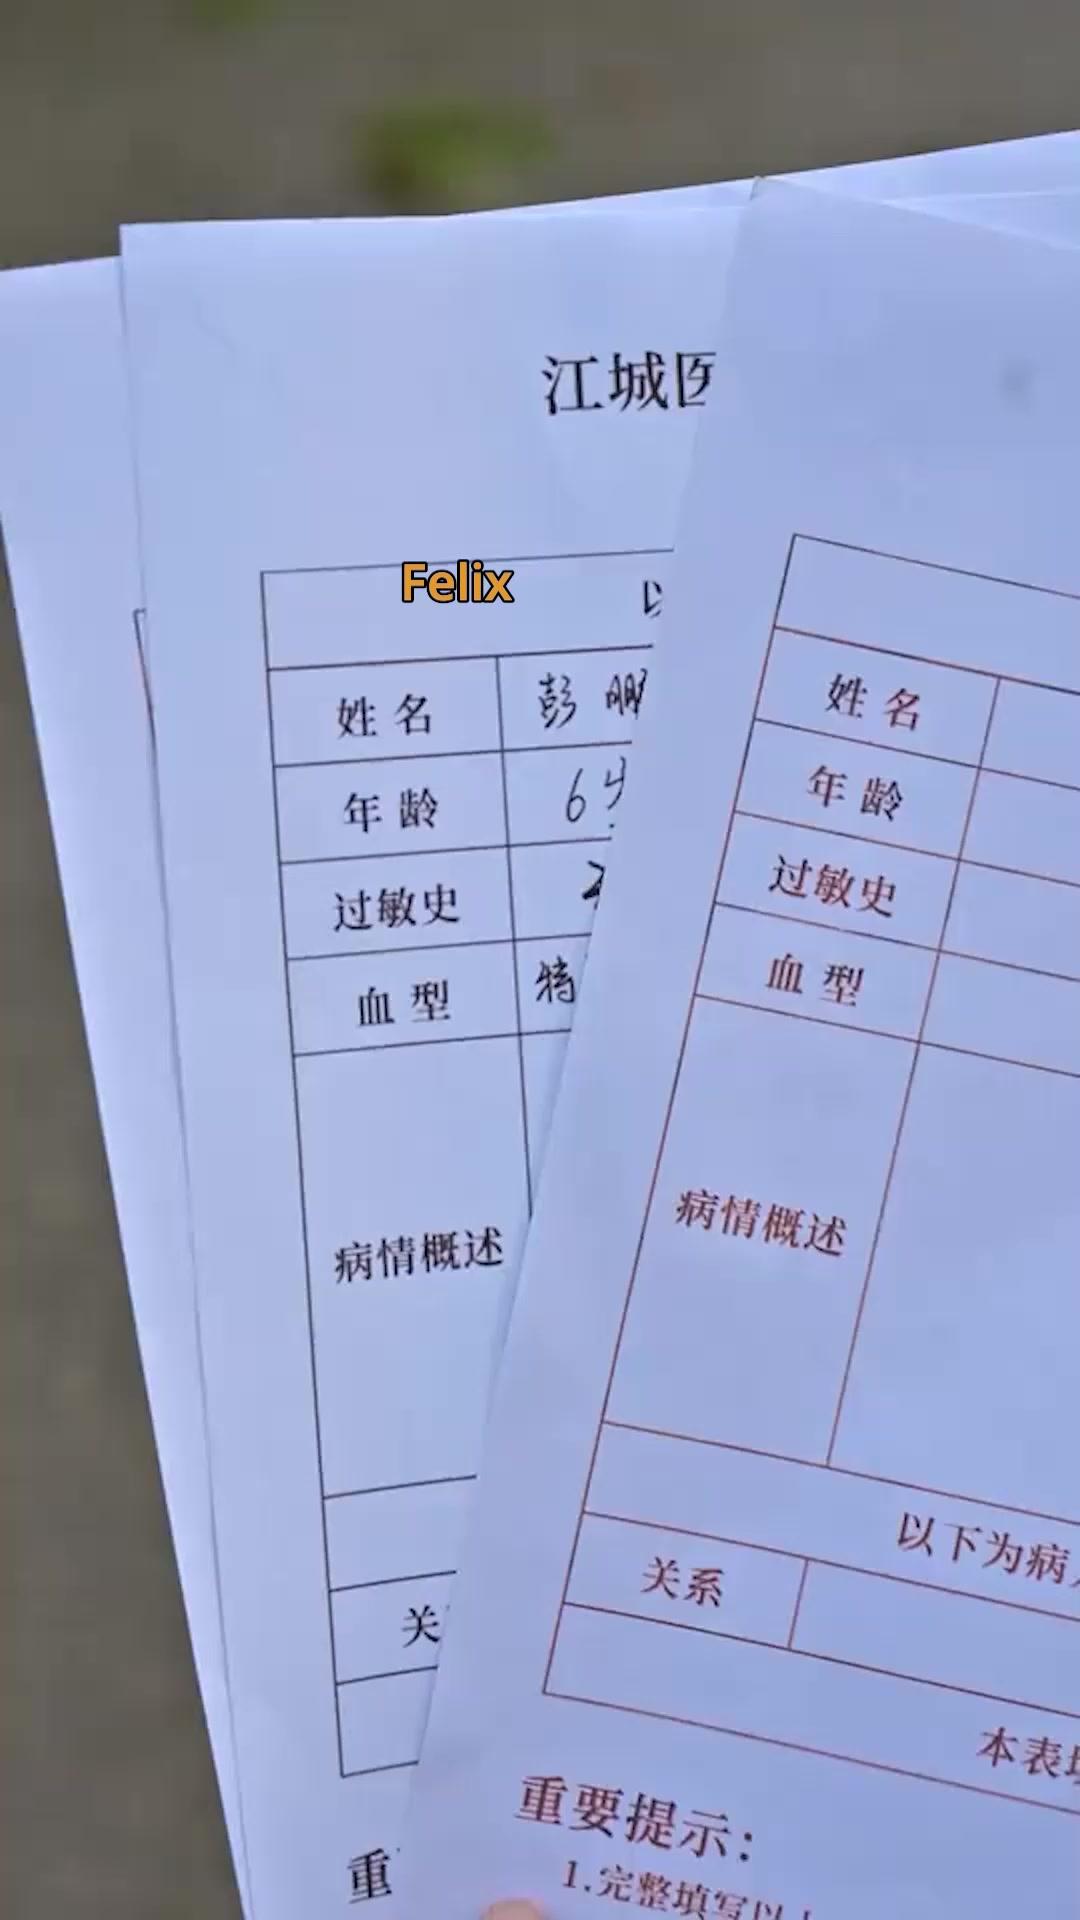 江城医
Felix
姓名 彭鹏
年龄 6
过敏史
血型 特
病情概述
关
重
姓名
年龄
过敏史
血型
病情概述
以下为病
关系
本表
重要提示：
1.完整填写以上